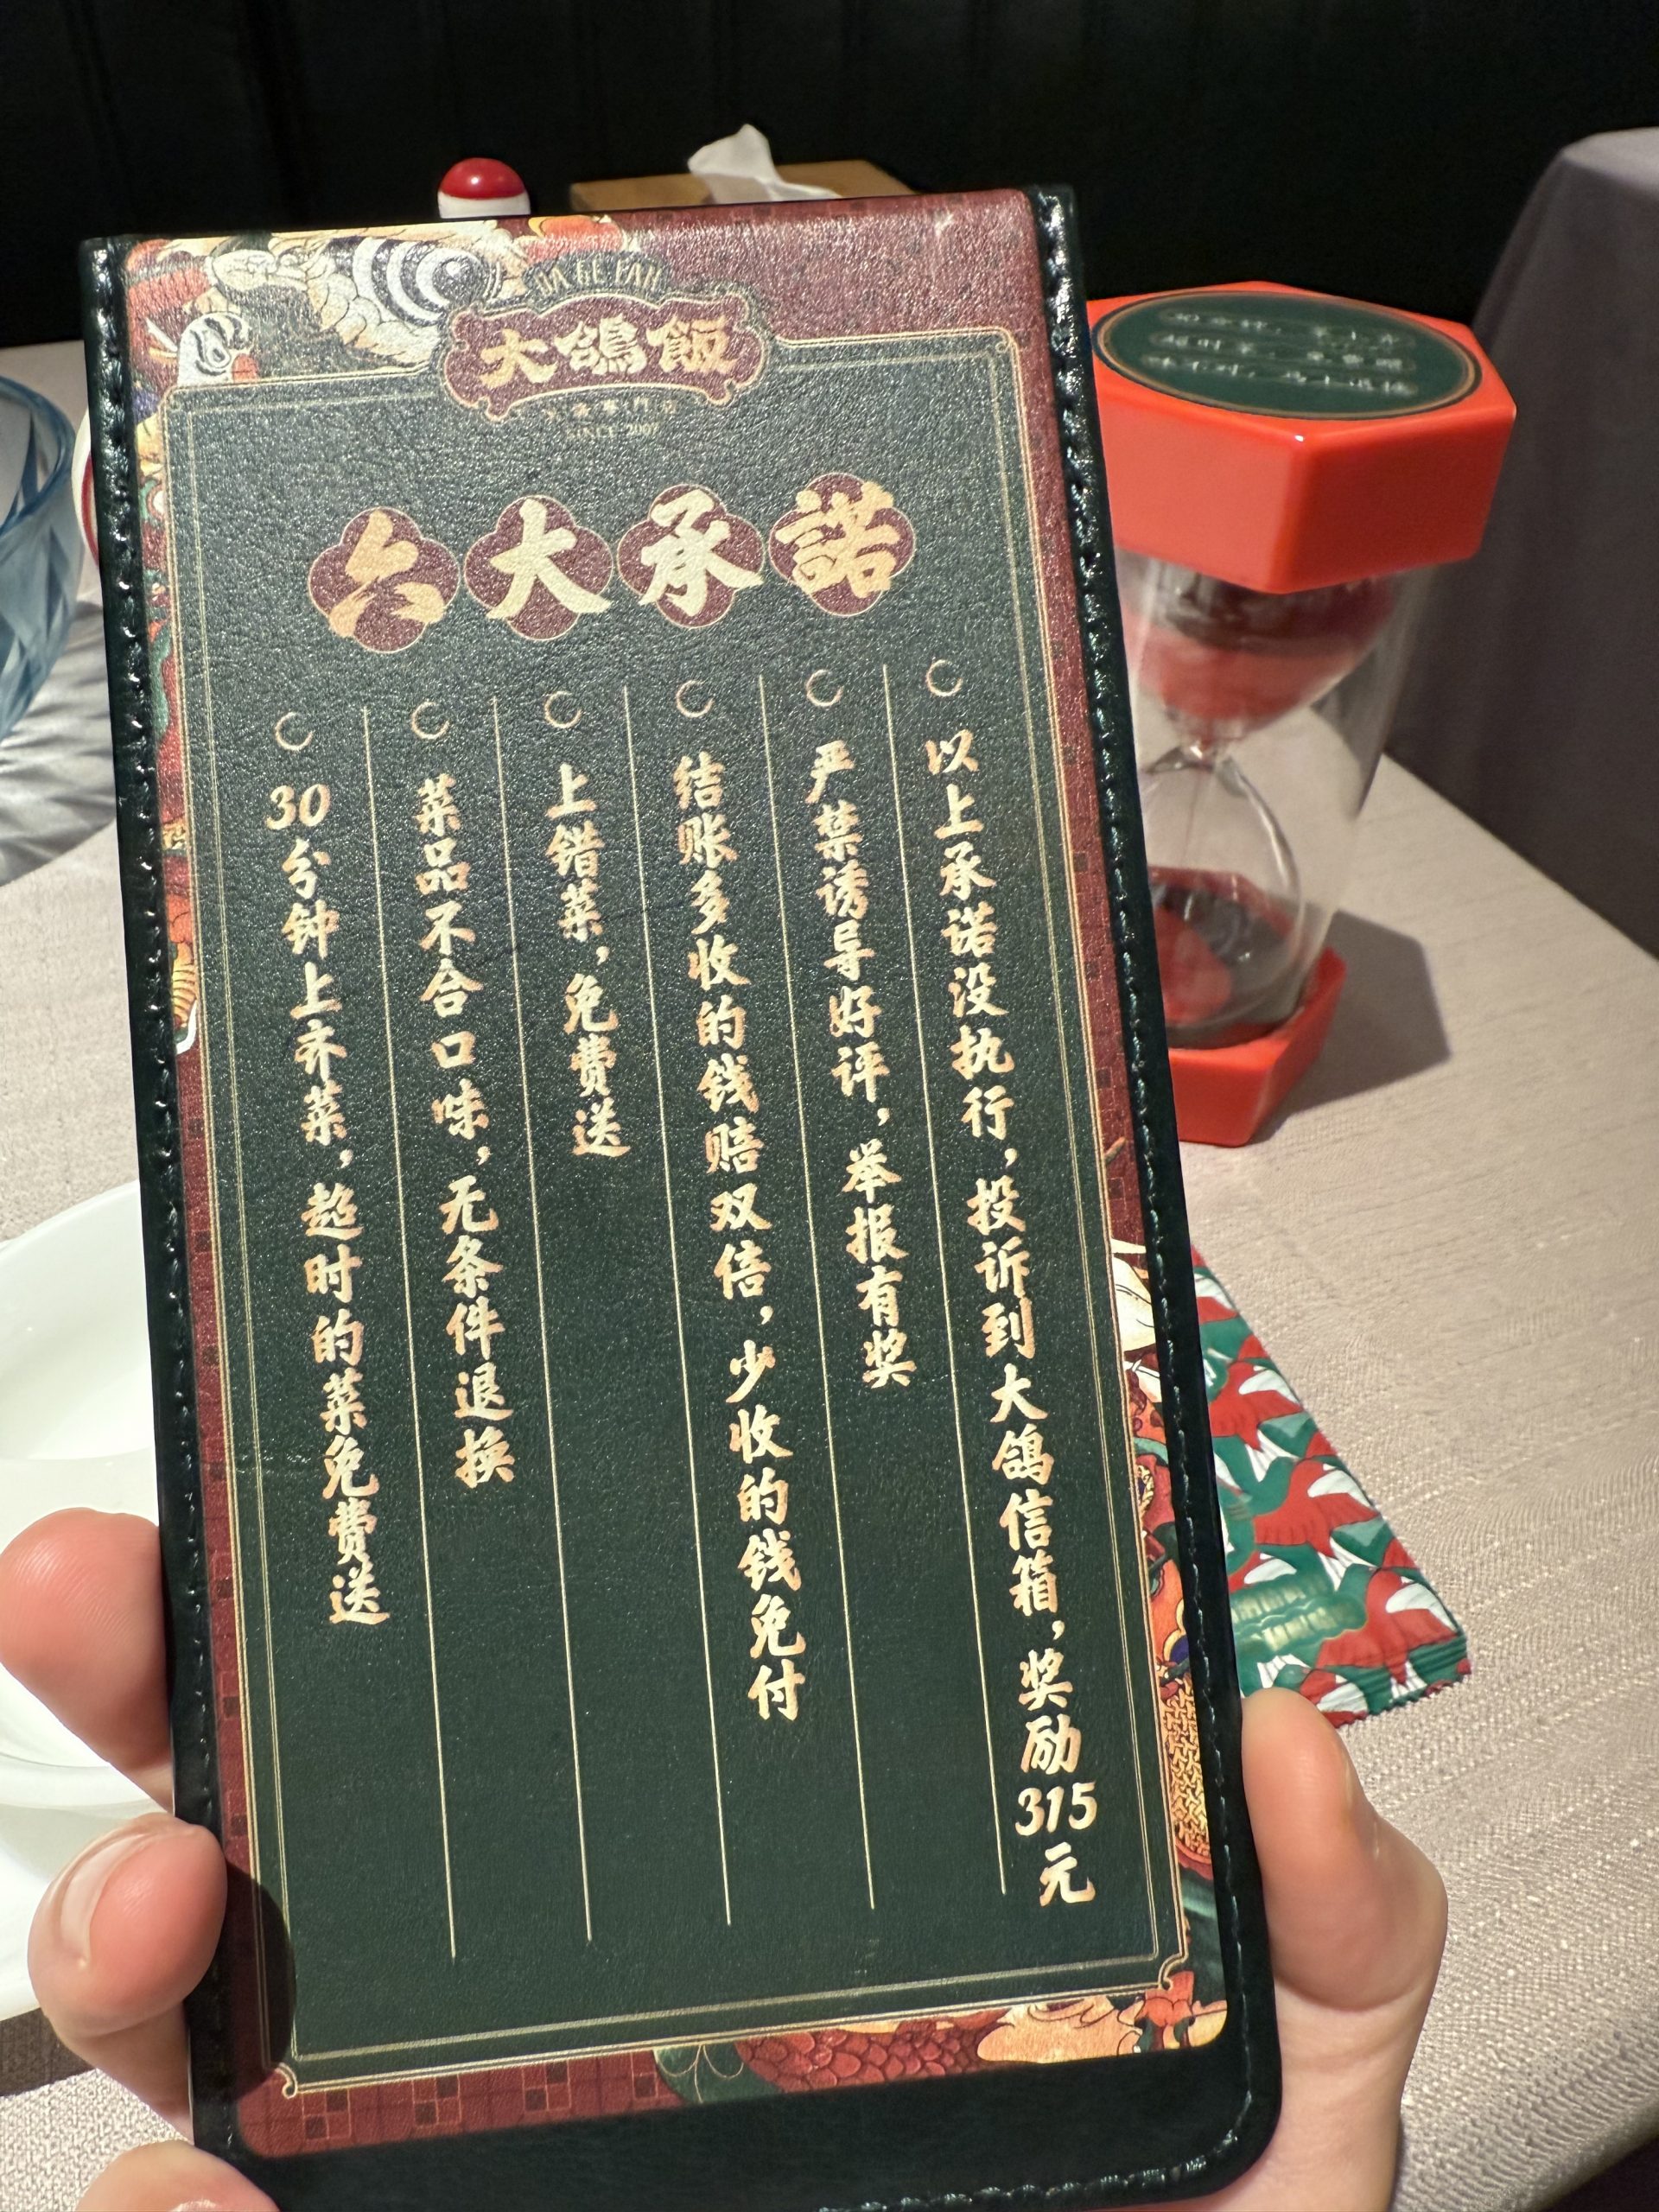 DA GE FAN
大鴿飯
SINCE 2007
六大承諾
30分钟上齐菜，超时的菜免费送
菜品不合口味，无条件退换
上错菜，免费送
结账多收的钱赔双倍，少收的钱免付
严禁诱导好评，举报有奖
以上承诺没执行，投诉到大鸽信箱，奖励315元